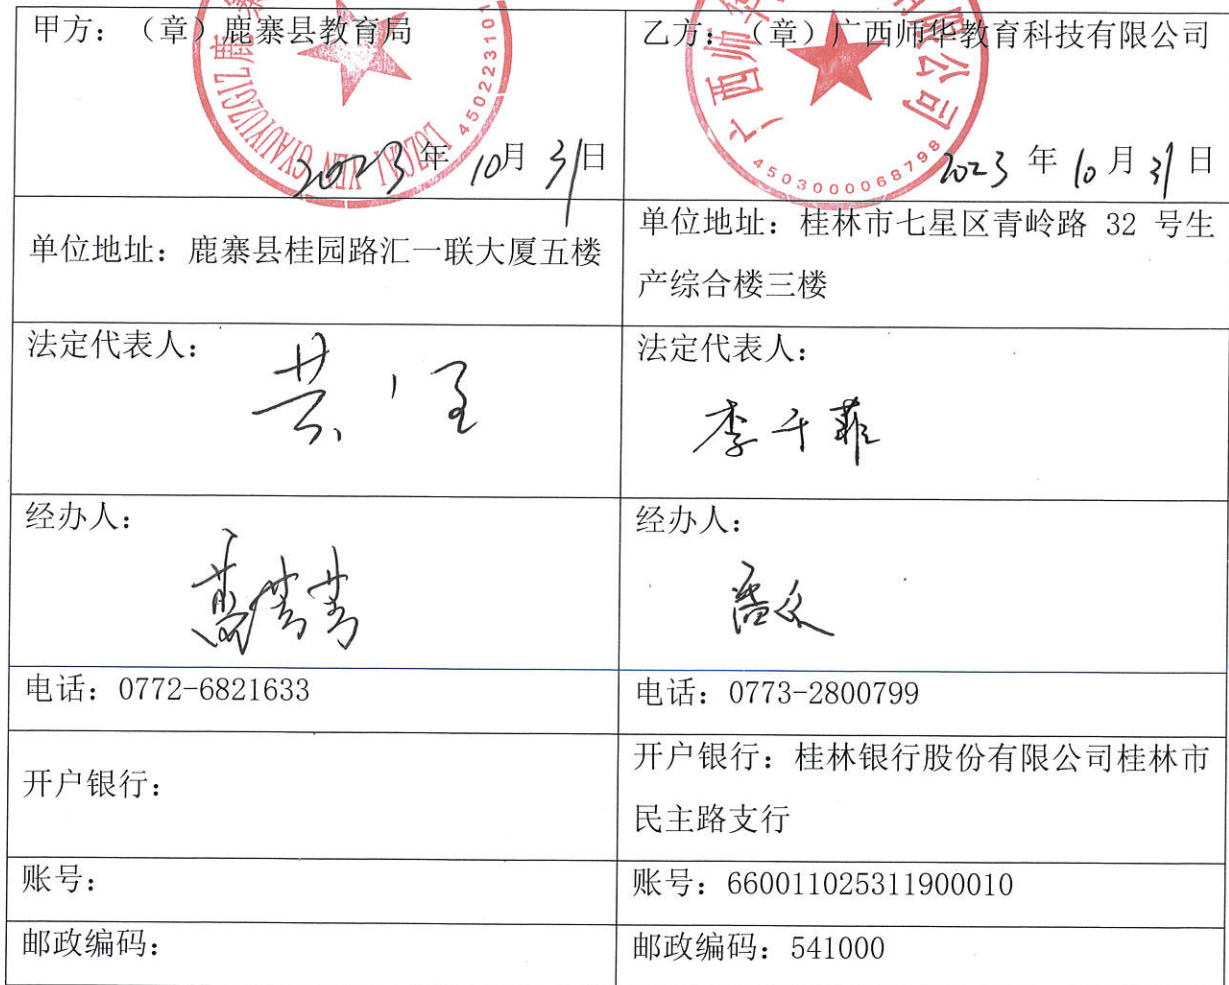 甲方：（章）鹿寨县教育局
2023年 10月 31日
乙方：（章）广西师华教育科技有限公司
4503000068798
2023 年 10 月 31 日
单位地址：鹿寨县桂园路汇一联大厦五楼
单位地址：桂林市七星区青岭路 32 号生
产综合楼三楼
法定代表人：
法定代表人：
李千菲
经办人：
经办人：
电话：0772-6821633
电话：0773-2800799
开户银行：
开户银行：桂林银行股份有限公司桂林市
民主路支行
账号：
账号：660011025311900010
邮政编码：
邮政编码：541000